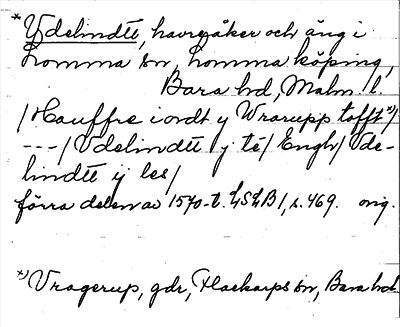 * Ydelindtt, havreåker och äng i
Lomma sn, Lomma köping,
Bara hd, Malm. l.
/Hauffre iordt y Wrarupp tofft *)/
---/ Vdelindtt y té/ Engh/ Vde-
lindtt ij les/
förra delen av 1570-t. LSLB1, s. 469. orig.
*) Vragerup, gdr, Flackarps sn, Bara hd.